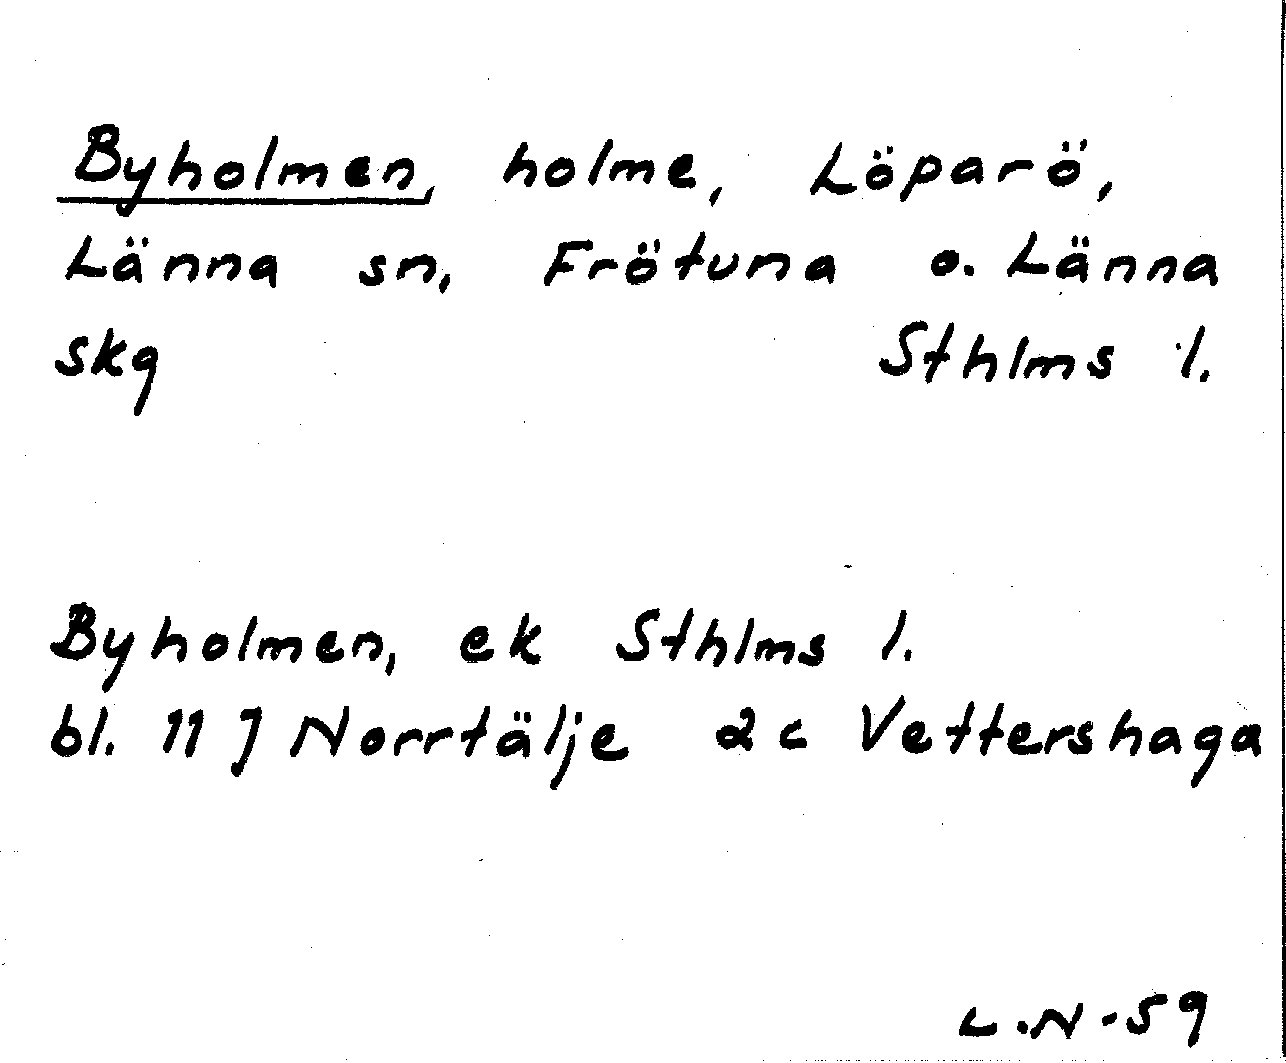 Byholmen, holme, Löparö,
Länna sn, Frötuna o. Länna
skg Sthlms l.
Byholmen, ek Sthlms l.
bl. 11 J Norrtälje 2 c Vettershaga
L.N.-59